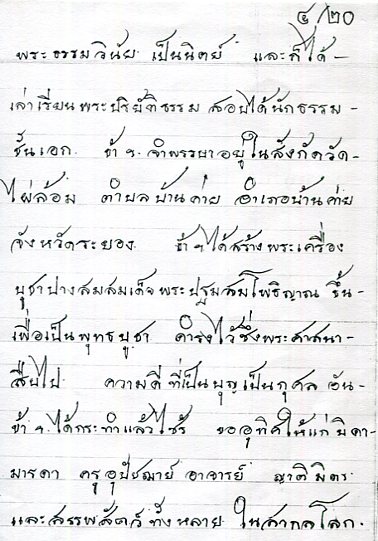 ๔/20
พระธรรมวินัย เป็นนิตย์ และก็ได้ -
เล่าเรียนพระปริยัติธรรม สอบได้นักธรรม -
ชั้นเอก. ข้า ฯ จำพรรษาอยู่ในสังกัดวัด -
ไผ่ล้อม ตำบลบ้านค่าย อำเภอบ้านค่าย
จังหวัดระยอง ข้า ฯ ได้สร้างพระเครื่อง
บูชาปางสมเด็จพระปฐมสัมโพธิญาณ ขึ้น -
เพื่อเป็นพุทธบูชา ดำรงไว้ซึ่งพระศาสนา -
สืบไป ความดีที่เป็นบุญเป็นกุศล อัน -
ข้า ฯ ได้กระทำแล้วไซร้ ขออุทิศให้แก่ บิดา -
มารดา ครูอุปัชฌาย์ อาจารย์ ญาติมิตร
และสรรพสัตว์ทั้งหลาย ในสากลโลก.